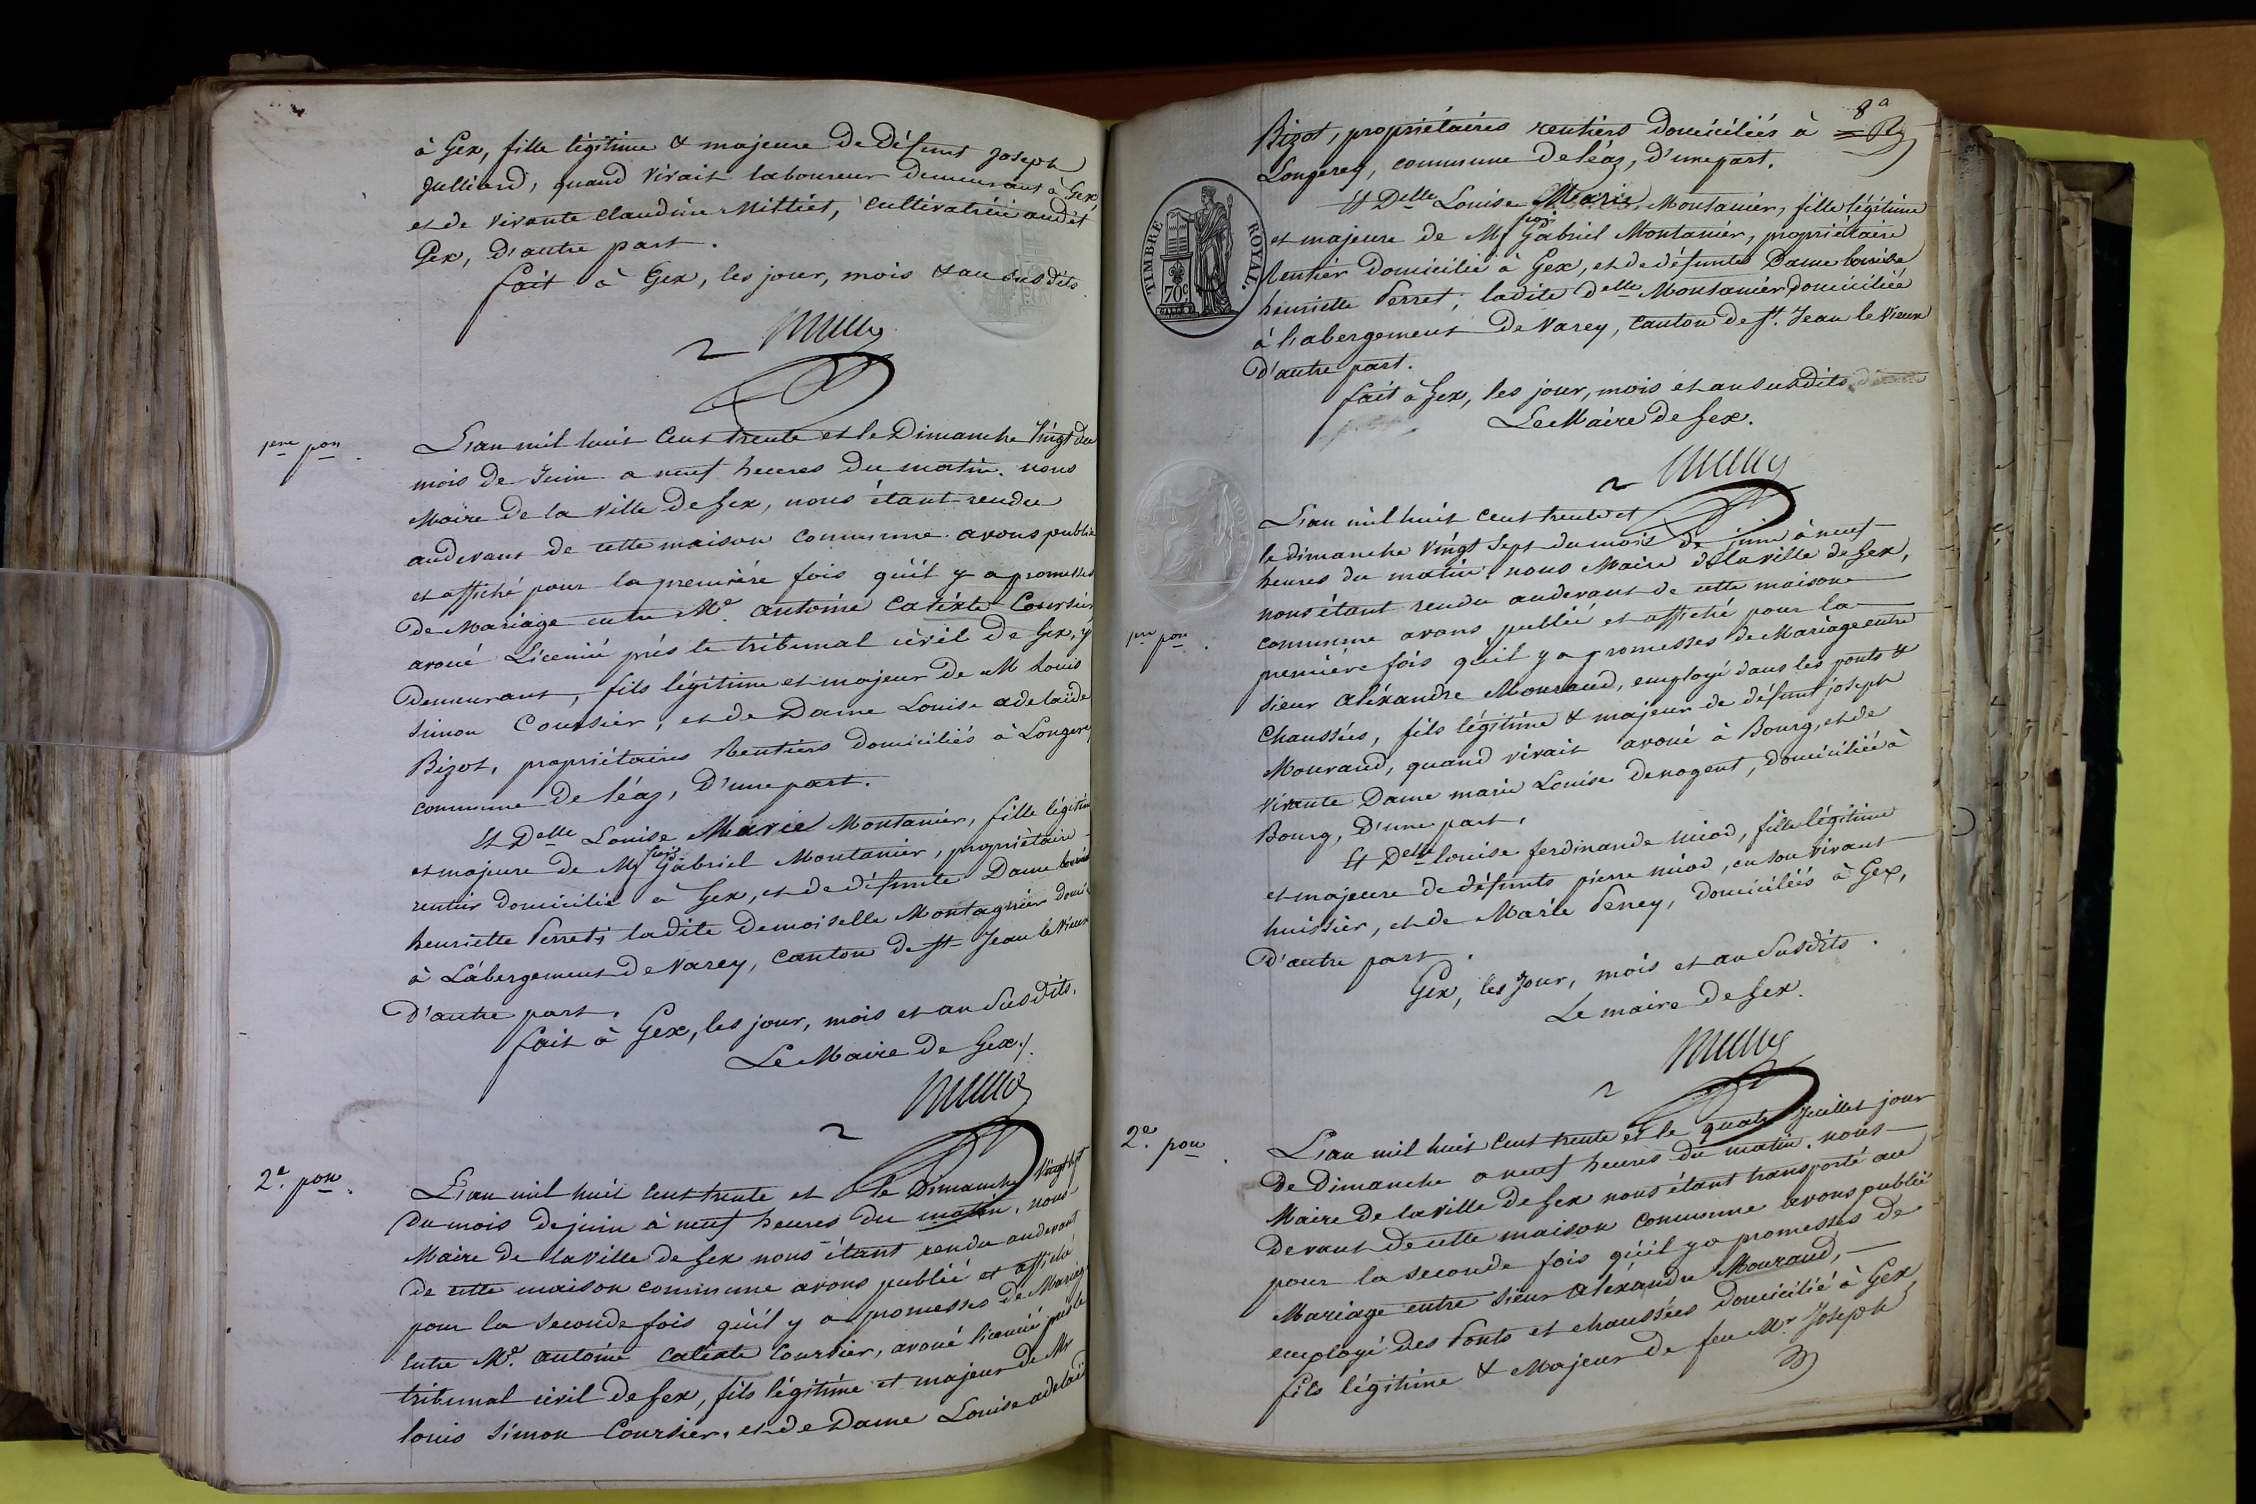 à Gex, fille légitime & majeure de défunt Joseph
Julliard, quand vivait laboureur demeurant à Gex,
et de vivante Claudine Mittiet, cultivatrice audit
Gex, d'autre part.
fait à Gex, les jour, mois & an susdits
1ere pon.
L'an mil huit cent trente et le Dimanche Vingt du
mois de Juin a neuf heures du matin. nous
Maire de la ville de Gex, nous étant rendu
audevant de cette maison commune avons publié
et affiché pour la première fois qu'il y a promesses
de Mariage entre Me. antoine Calixte Coursier
avoué Licencié près le tribunal civil de Gex, y
demeurant, fils légitime et majeur de M Louis
Simon Coursier, et de Dame Louise adelaïde
Bizot, propriétaires Rentiers domiciliés à Longerey
commune de Léaz, D'une part.
Et Delle Louise Marie Montanier, fille légitime
et majeure de M. fçois Gabriel Montanier, propriétaire
rentier domicilié à Gex, et de défunte Dame Louise
henriette Perret; ladite Demoiselle Montagnier domiciliée
à Labergement de Varey, canton de St Jean le Vieux
D'autre part.
fait à Gex, les jour, mois et an susdits.
Le Maire de Gex.
2e. pon.
L'an mil huit cent trente et le Dimanche Vingt sept
du mois de juin à neuf heures du matin, nous
Maire de la ville de Gex nous étant rendu audevant
de cette maison commune avons publié et affiché
pour la seconde fois qu'il y a promesses de Mariage
Entre Me. antoine calixte Coursier, avoué licencié près le
tribunal civil de Gex, fils légitime et majeur de Mr
louis Simon Coursier, et de Dame Louise adelaïde
8e
Bizot, propriétaires rentiers domiciliés à
Longerey, commune de Léaz, d'une part.
Et Delle Louise Marie, Montanier, fille légitime
et majeure de M. fçois Gabriel Montanier, propriétaire
Rentier domicilié à Gex, et de défunte Dame Louise
henriette Perret; ladite Delle Montanier domiciliée
à l'abergement de Varey, canton de St. Jean le Vieux
d'autre part.
fait à Gex, les jour, mois et an susdits
Le Maire de Gex.
TIMBRE ROYAL.
70c
L'an mil huit cent trente et
le dimanche vingt sept du mois de juin à neuf
heures du matin. nous Maire de la ville de Gex,
nous étant rendu audevant de cette maison
commune avons publié et affiché pour la
1ere pon.
première fois qu'il y a promesses de Mariage entre
Sieur Aléxandre Mouraud, employé dans les ponts &
Chaussées, fils légitime & majeur de défunt joseph
Mouraud, quand vivait avoué à Bourg, et de
vivante Dame marie Louise denogent, domiciliée à
Bourg, D'une part,
Et Delle louise ferdinande Miod, fille légitime
et majeure de défunts pierre miod, en son vivant
huissier, et de Marie Peney, domiciliés à Gex,
D'autre part.
Gex, les jour, mois et an susdits.
Le maire de Gex.
2e. pon.
L'an mil huit cent trente et le quatre Juillet jour
de Dimanche a neuf heures du matin. nous
Maire de la ville de Gex nous étant transporté au
devant de cette maison commune avons publié
pour la seconde fois qu'il y a promesses de
Mariage entre Sieur Aléxandre Mouraud,
employé des Ponts et chaussées domicilié à Gex
fils légitime & Majeur de feu Mr. Joseph